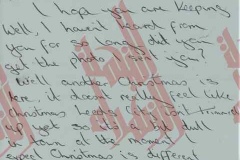 I hope you are keeping
well, haven't heard from
you for so long did you
get the photo I sent you?
Well another Christmas is
here, it doesn't really feel like
christmas Leeds City isn't trimmed
up yet so its a bit dull
in town at the moment I
expect Christmas is different